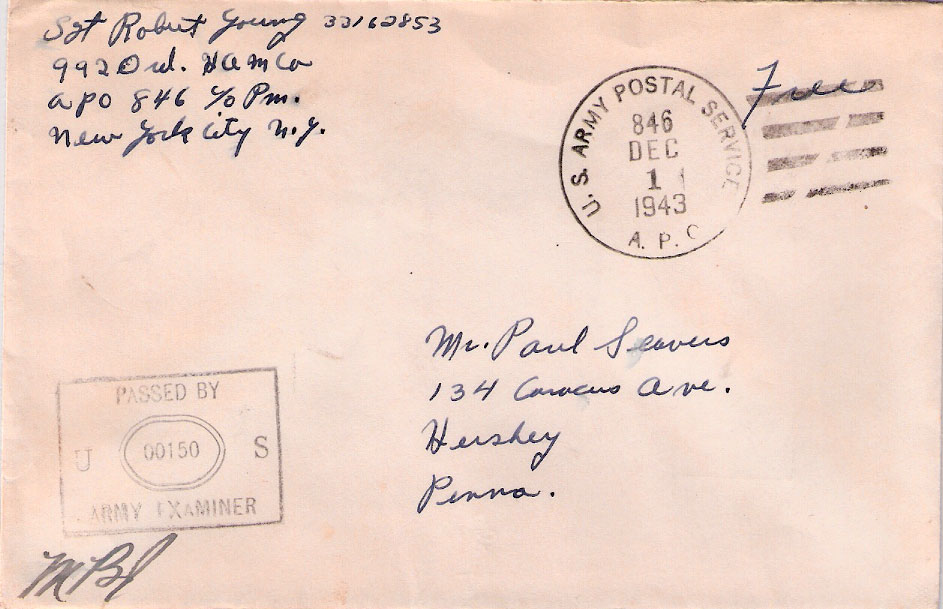 Sgt Robert Young 33162853
992 Ord. HAM Co
APO 846 c/o Pm.
New York City N.Y.
Free
U.S. ARMY POSTAL SERVICE
846
DEC
1
1943
A. P. O
Mr. Paul Seavers
134 Caracas Ave.
Hershey
Penna.
PASSED BY
U 00150 S
ARMY EXAMINER